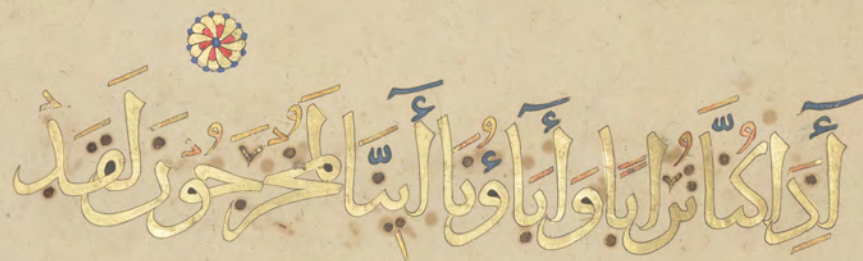 أَءِذَا كُنَّا تُرَابًا وَءَابَاؤُنَا أَئِنَّا لَمُخْرَجُونَ لَقَدْ